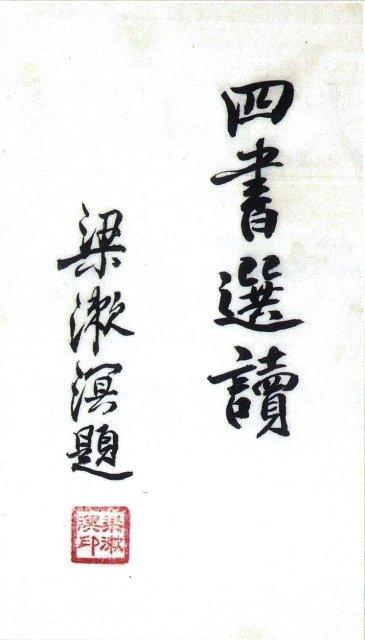 四書選讀
梁漱溟題
梁漱溟印